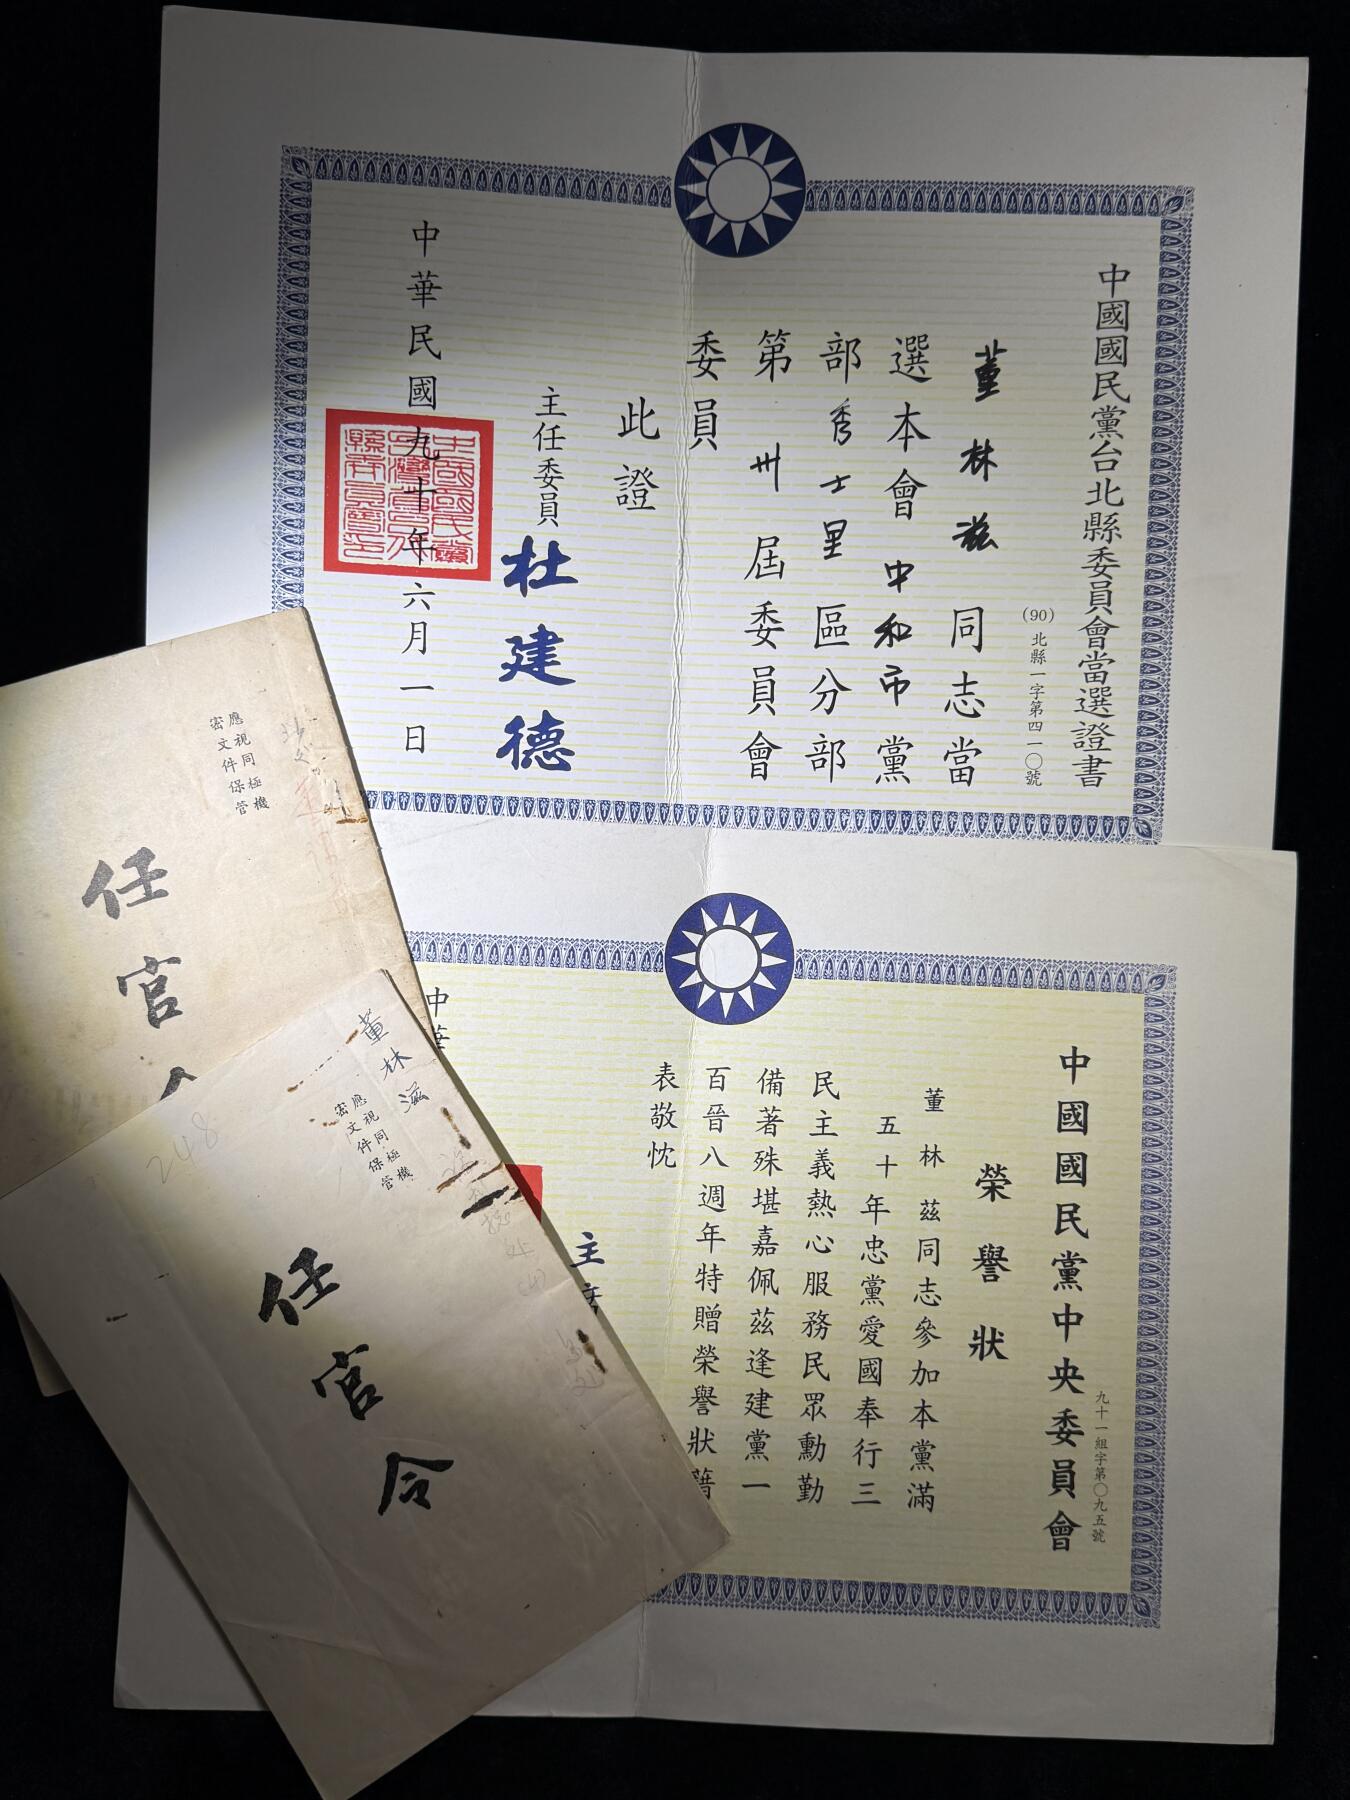 中國國民黨台北縣委員會當選證書
(90)北縣一字第四一〇號
董林茲同志當
選本會中和市黨
部秀士里區分部
第卅屆委員會
委員
此證
主任委員
杜建德
中華民國九十年六月一日
中國國民黨中央委員會
九十一組字第〇九五號
榮譽狀
董林茲同志參加本黨滿
五十年忠黨愛國奉行三
民主義熱心服務民眾勳勤
備著殊堪嘉佩茲逢建黨一
百晉八週年特贈榮譽狀藉
表敬忱
主席
中華
應視同極機
密文件保管
任官
董林滋
應視同極機
密文件保管
248
任官令